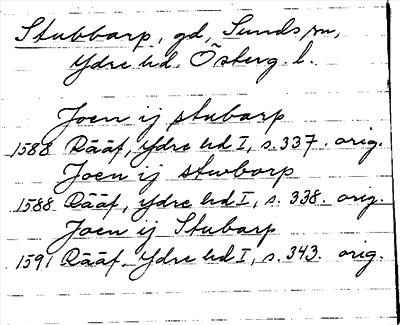 Stubbarp, gd, Sunds sn,
Ydre hd. Österg. l.
Joen ij stubarp
1588 Rääf, Ydre hd I, s. 337. orig.
Joen ij stwborp
1588 Rääf, Ydre hd I, s. 338. orig.
Joen ij Stubarp
1591 Rääf, Ydre hd I, s. 343. orig.